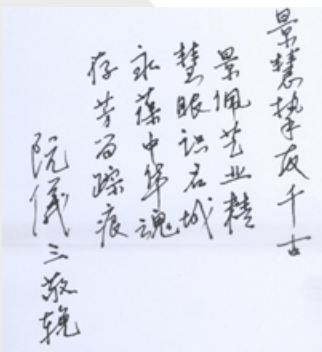 景慧挚友千古
景佩艺业精
慧眼识名城
永葆中华魂
存芳留踪痕
阮仪三敬挽